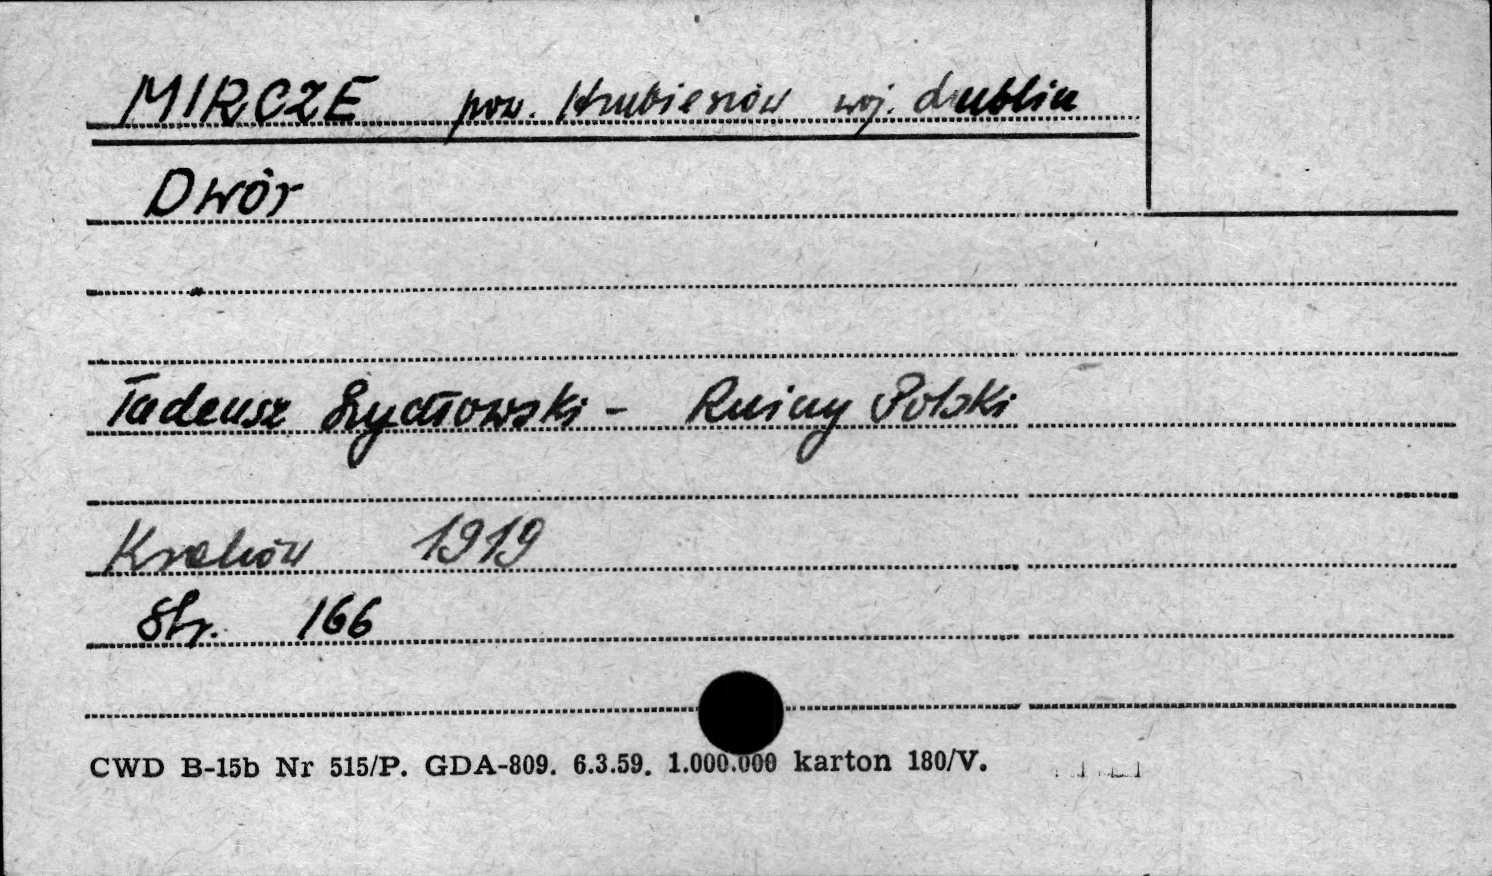 MIRCZE pow. Hrubieszów woj. Lublin
Dwór
Tadeusz Szydłowski - Ruiny Polski
Kraków 1919
Str. 166
CWD B-15b Nr 515/P. GDA-809. 6.3.59. 1.000.000 karton 180/V.